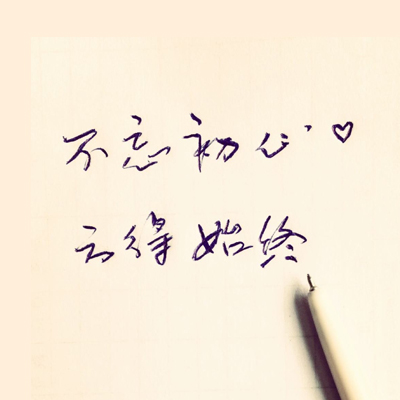 不忘初心♡
方得始终